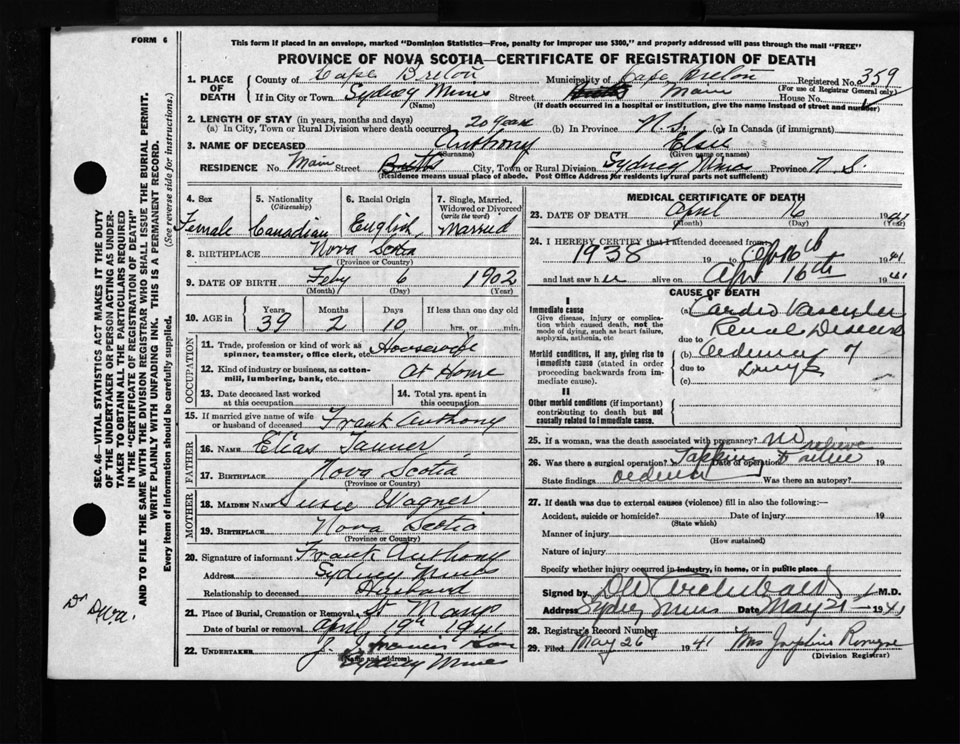 FORM 6
This form if placed in an envelope, marked "Dominion Statistics—Free, penalty for improper use $300," and properly addressed will pass through the mail "FREE"
PROVINCE OF NOVA SCOTIA—CERTIFICATE OF REGISTRATION OF DEATH
1. PLACE OF DEATH County of Cape Breton Municipality of Cape Breton Registered No. 359
(For use of Registrar General only)
If in City or Town Sydney Mines Street Main House No.
(Name) (If death occurred in a hospital or institution, give the name instead of street and number)
2. LENGTH OF STAY (in years, months and days)
(a) In City, Town or Rural Division where death occurred 20 years (b) In Province N.S. (c) In Canada (if immigrant)
3. NAME OF DECEASED Anthony Elsie
(Surname) (Given name or names)
RESIDENCE No. Main Street City, Town or Rural Division Sydney Mines Province N S
(Residence means usual place of abode. Post Office Address for residents in rural parts not sufficient)
4. Sex 5. Nationality (Citizenship) 6. Racial Origin 7. Single, Married, Widowed or Divorced (write the word)
Female Canadian English Married
8. BIRTHPLACE Nova Scotia
(Province or Country)
9. DATE OF BIRTH Feby 6 1902
(Month) (Day) (Year)
10. AGE in Years Months Days If less than one day old
39 2 10 hrs. or min.
OCCUPATION
11. Trade, profession or kind of work as spinner, teamster, office clerk, etc. Housewife
12. Kind of industry or business, as cotton-mill, lumbering, bank, etc. At Home
13. Date deceased last worked at this occupation 14. Total yrs. spent in this occupation
15. If married give name of wife or husband of deceased Frank Anthony
FATHER
16. NAME Elias Tanner
17. BIRTHPLACE Nova Scotia
(Province or Country)
MOTHER
18. MAIDEN NAME Susie Wagner
19. BIRTHPLACE Nova Scotia
(Province or Country)
20. Signature of informant Frank Anthony
Address Sydney Mines
Relationship to deceased Husband
21. Place of Burial, Cremation or Removal St Marys
Date of burial or removal April 19th 1941
22. UNDERTAKER J. Francis Son
(Name and address) Sydney Mines
MEDICAL CERTIFICATE OF DEATH
23. DATE OF DEATH April 16 1941
(Month) (Day) (Year)
24. I HEREBY CERTIFY that I attended deceased from
1938 19 to Apr 16th 1941
and last saw her alive on Apr 16th 1941
CAUSE OF DEATH
I
Immediate cause
Give disease, injury or complication which caused death, not the mode of dying, such as heart failure, asphyxia, asthenia, etc
(a) Cardio Vascular
Renal Disease
due to
Morbid conditions, if any, giving rise to immediate cause (stated in order proceeding backwards from immediate cause).
(b) Oedema of
due to Lungs
(c)
II
Other morbid conditions (if important) contributing to death but not causally related to immediate cause.
25. If a woman, was the death associated with pregnancy? No
26. Was there a surgical operation? Tapping Date of operation to relieve 19
State findings oedema Was there an autopsy?
27. If death was due to external causes (violence) fill in also the following:—
Accident, suicide or homicide? Date of injury 19
(State which)
Manner of injury
(How sustained)
Nature of injury
Specify whether injury occurred in industry, in home, or in public place
Signed by Archibald M.D.
Address Sydney Mines Date May 21 1941
28. Registrar's Record Number
29. Filed May 26 1941 Mrs Josephine
(Division Registrar)
SEC. 46—VITAL STATISTICS ACT MAKES IT THE DUTY
OF THE UNDERTAKER OR PERSON ACTING AS UNDER-
TAKER TO OBTAIN ALL THE PARTICULARS REQUIRED
IN THE "CERTIFICATE OF REGISTRATION OF DEATH"
AND TO FILE THE SAME WITH THE DIVISION REGISTRAR WHO SHALL ISSUE THE BURIAL PERMIT.
WRITE PLAINLY WITH UNFADING INK. THIS IS A PERMANENT RECORD.
Every item of information should be carefully supplied. (See reverse side for instructions.)